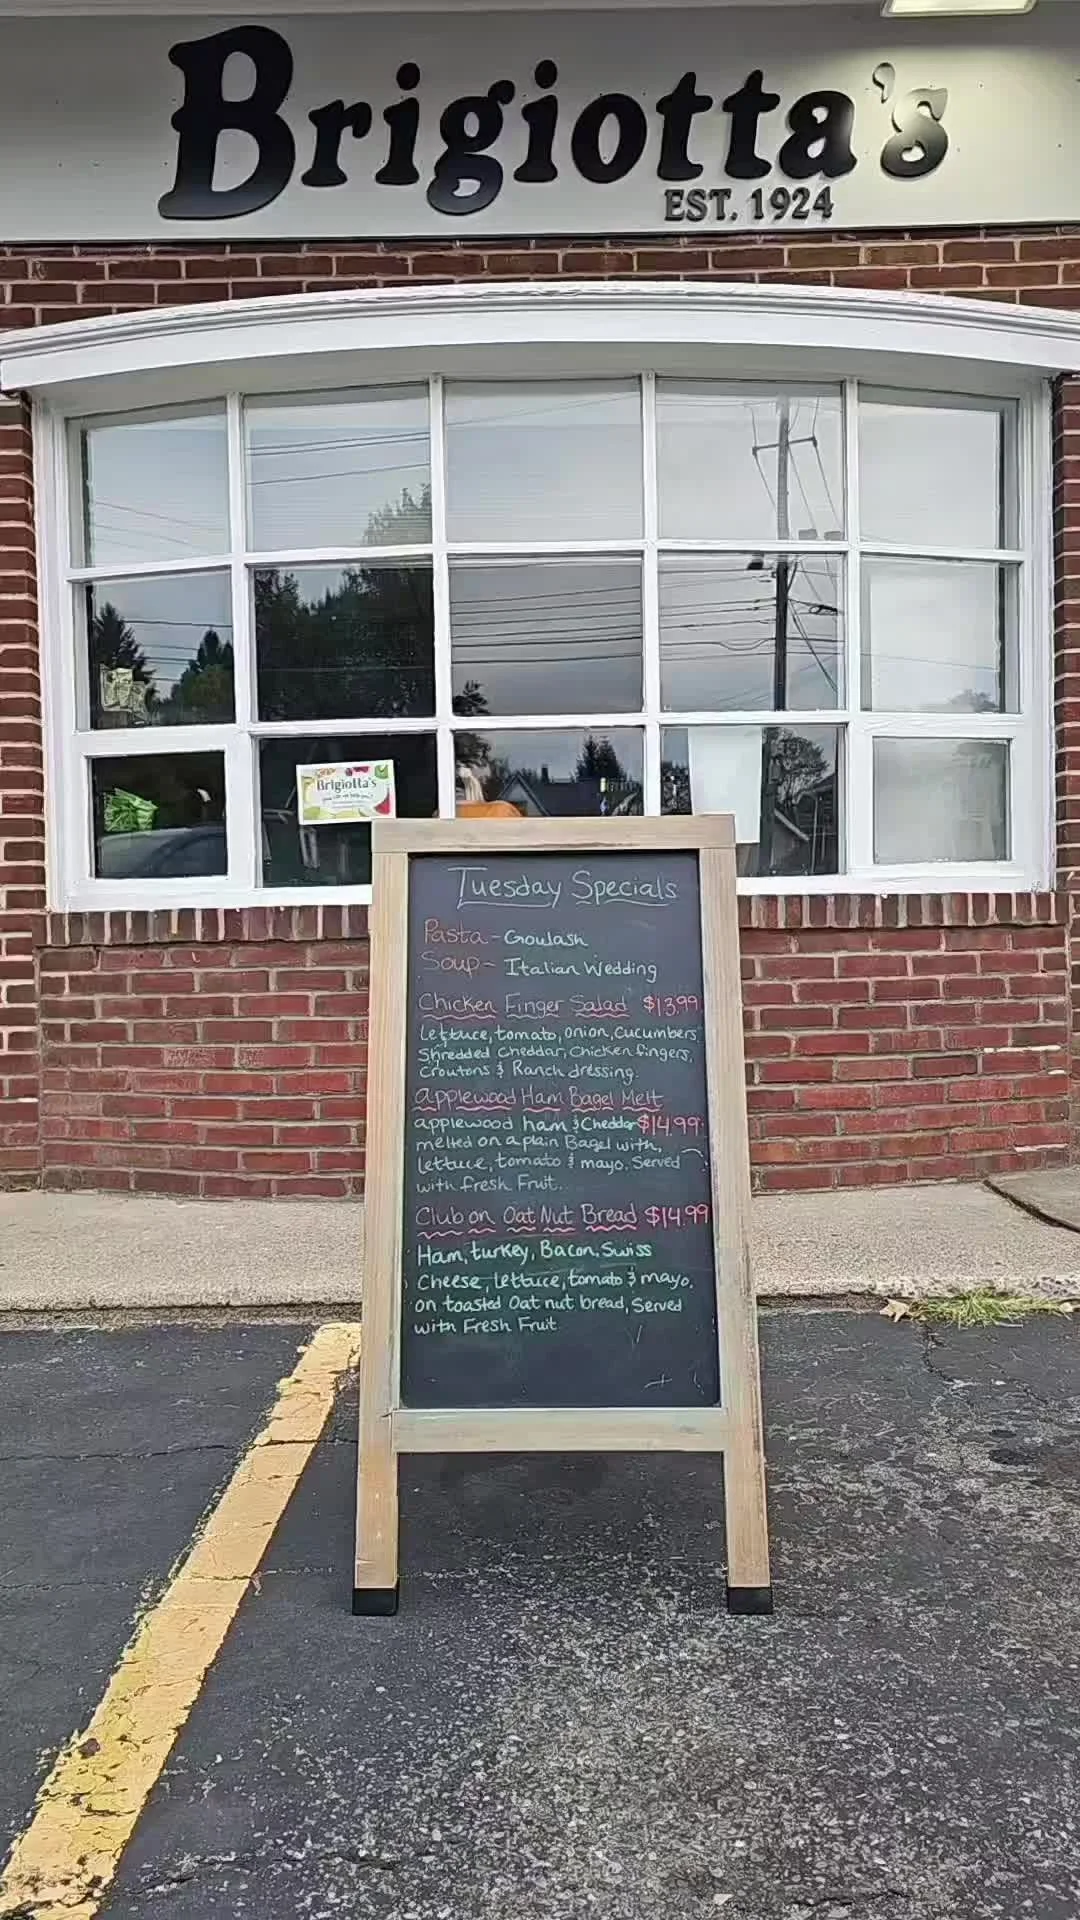 Brigiotta's
EST. 1924
Brigiotta's
Tuesday Specials
Pasta - Goulash
Soup - Italian Wedding
Chicken Finger Salad $13.99
Lettuce, tomato, onion, cucumbers,
Shredded Cheddar, Chicken fingers,
Croutons & Ranch dressing.
Applewood Ham Bagel Melt
applewood ham & Cheddar $14.99
melted on a plain Bagel with,
Lettuce, tomato & mayo. Served
with fresh Fruit.
Club on Oat Nut Bread $14.99
Ham, turkey, Bacon, Swiss
Cheese, lettuce, tomato & mayo,
on toasted Oat nut bread, Served
with Fresh Fruit